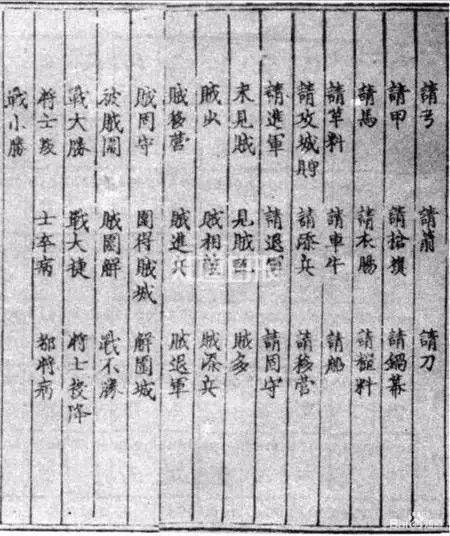 請弓　請箭　請刀
請甲　請槍旗　請鍋幕
請馬　請衣　請糧料
請草料　請車牛　請船
請攻城　請添兵　請移營
請進軍　請退軍　請固守
未見賊　見賊訖　賊多
賊　賊相敵　賊添兵
賊移營　賊進兵　賊退軍
賊固守　圍得賊城　解圍城
被賊圍　賊圍解　戰不勝
戰大勝　戰大捷　將士投降
將士叛　士卒病　都將病
戰小勝